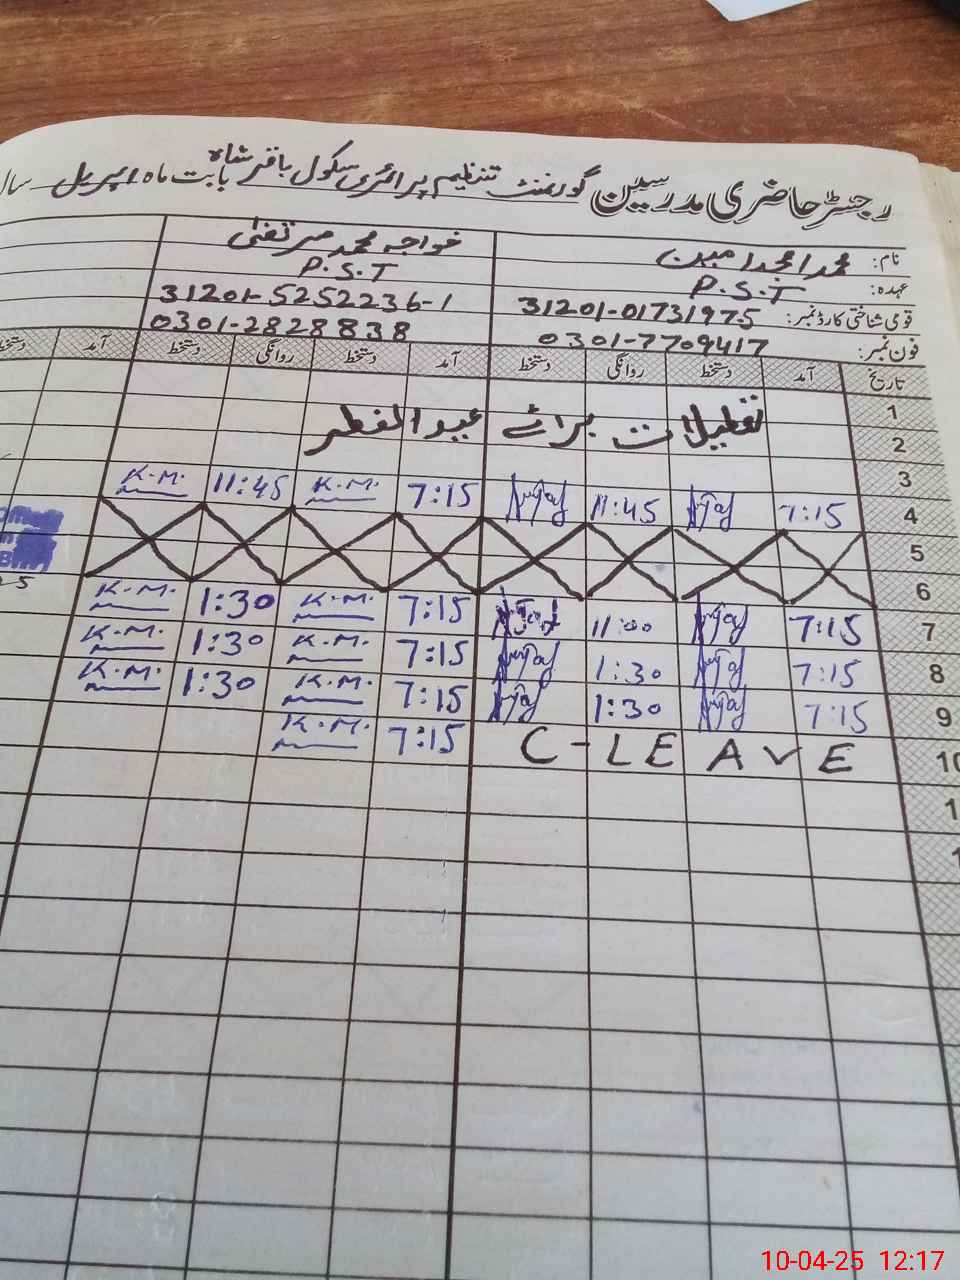 رجسٹر حاضری مدرسین گورنمنٹ تنظیم پرائمری سکول باقر شاہ بابت ماہ اپریل سال
نام: محمد امجد امین خواجہ محمد مرتضیٰ
عہدہ: P.S.T P.S.T
قومی شناختی کارڈ نمبر: 31201-01731975 31201-5252236-1
فون نمبر: 0301-7709417 0301-2828838
تاریخ آمد دستخط روانگی دستخط آمد دستخط روانگی دستخط آمد
1
تعطیلات برائے عید الفطر
2
3
4 7:15 11:45 7:15 K.M. 11:45 K.M.
5
6
7 7:15 11:00 7:15 K.M. 1:30 K.M.
8 7:15 1:30 7:15 K.M. 1:30 K.M.
9 7:15 1:30 7:15 K.M. 1:30 K.M.
10 C-LEAVE 7:15 K.M.
10-04-25 12:17